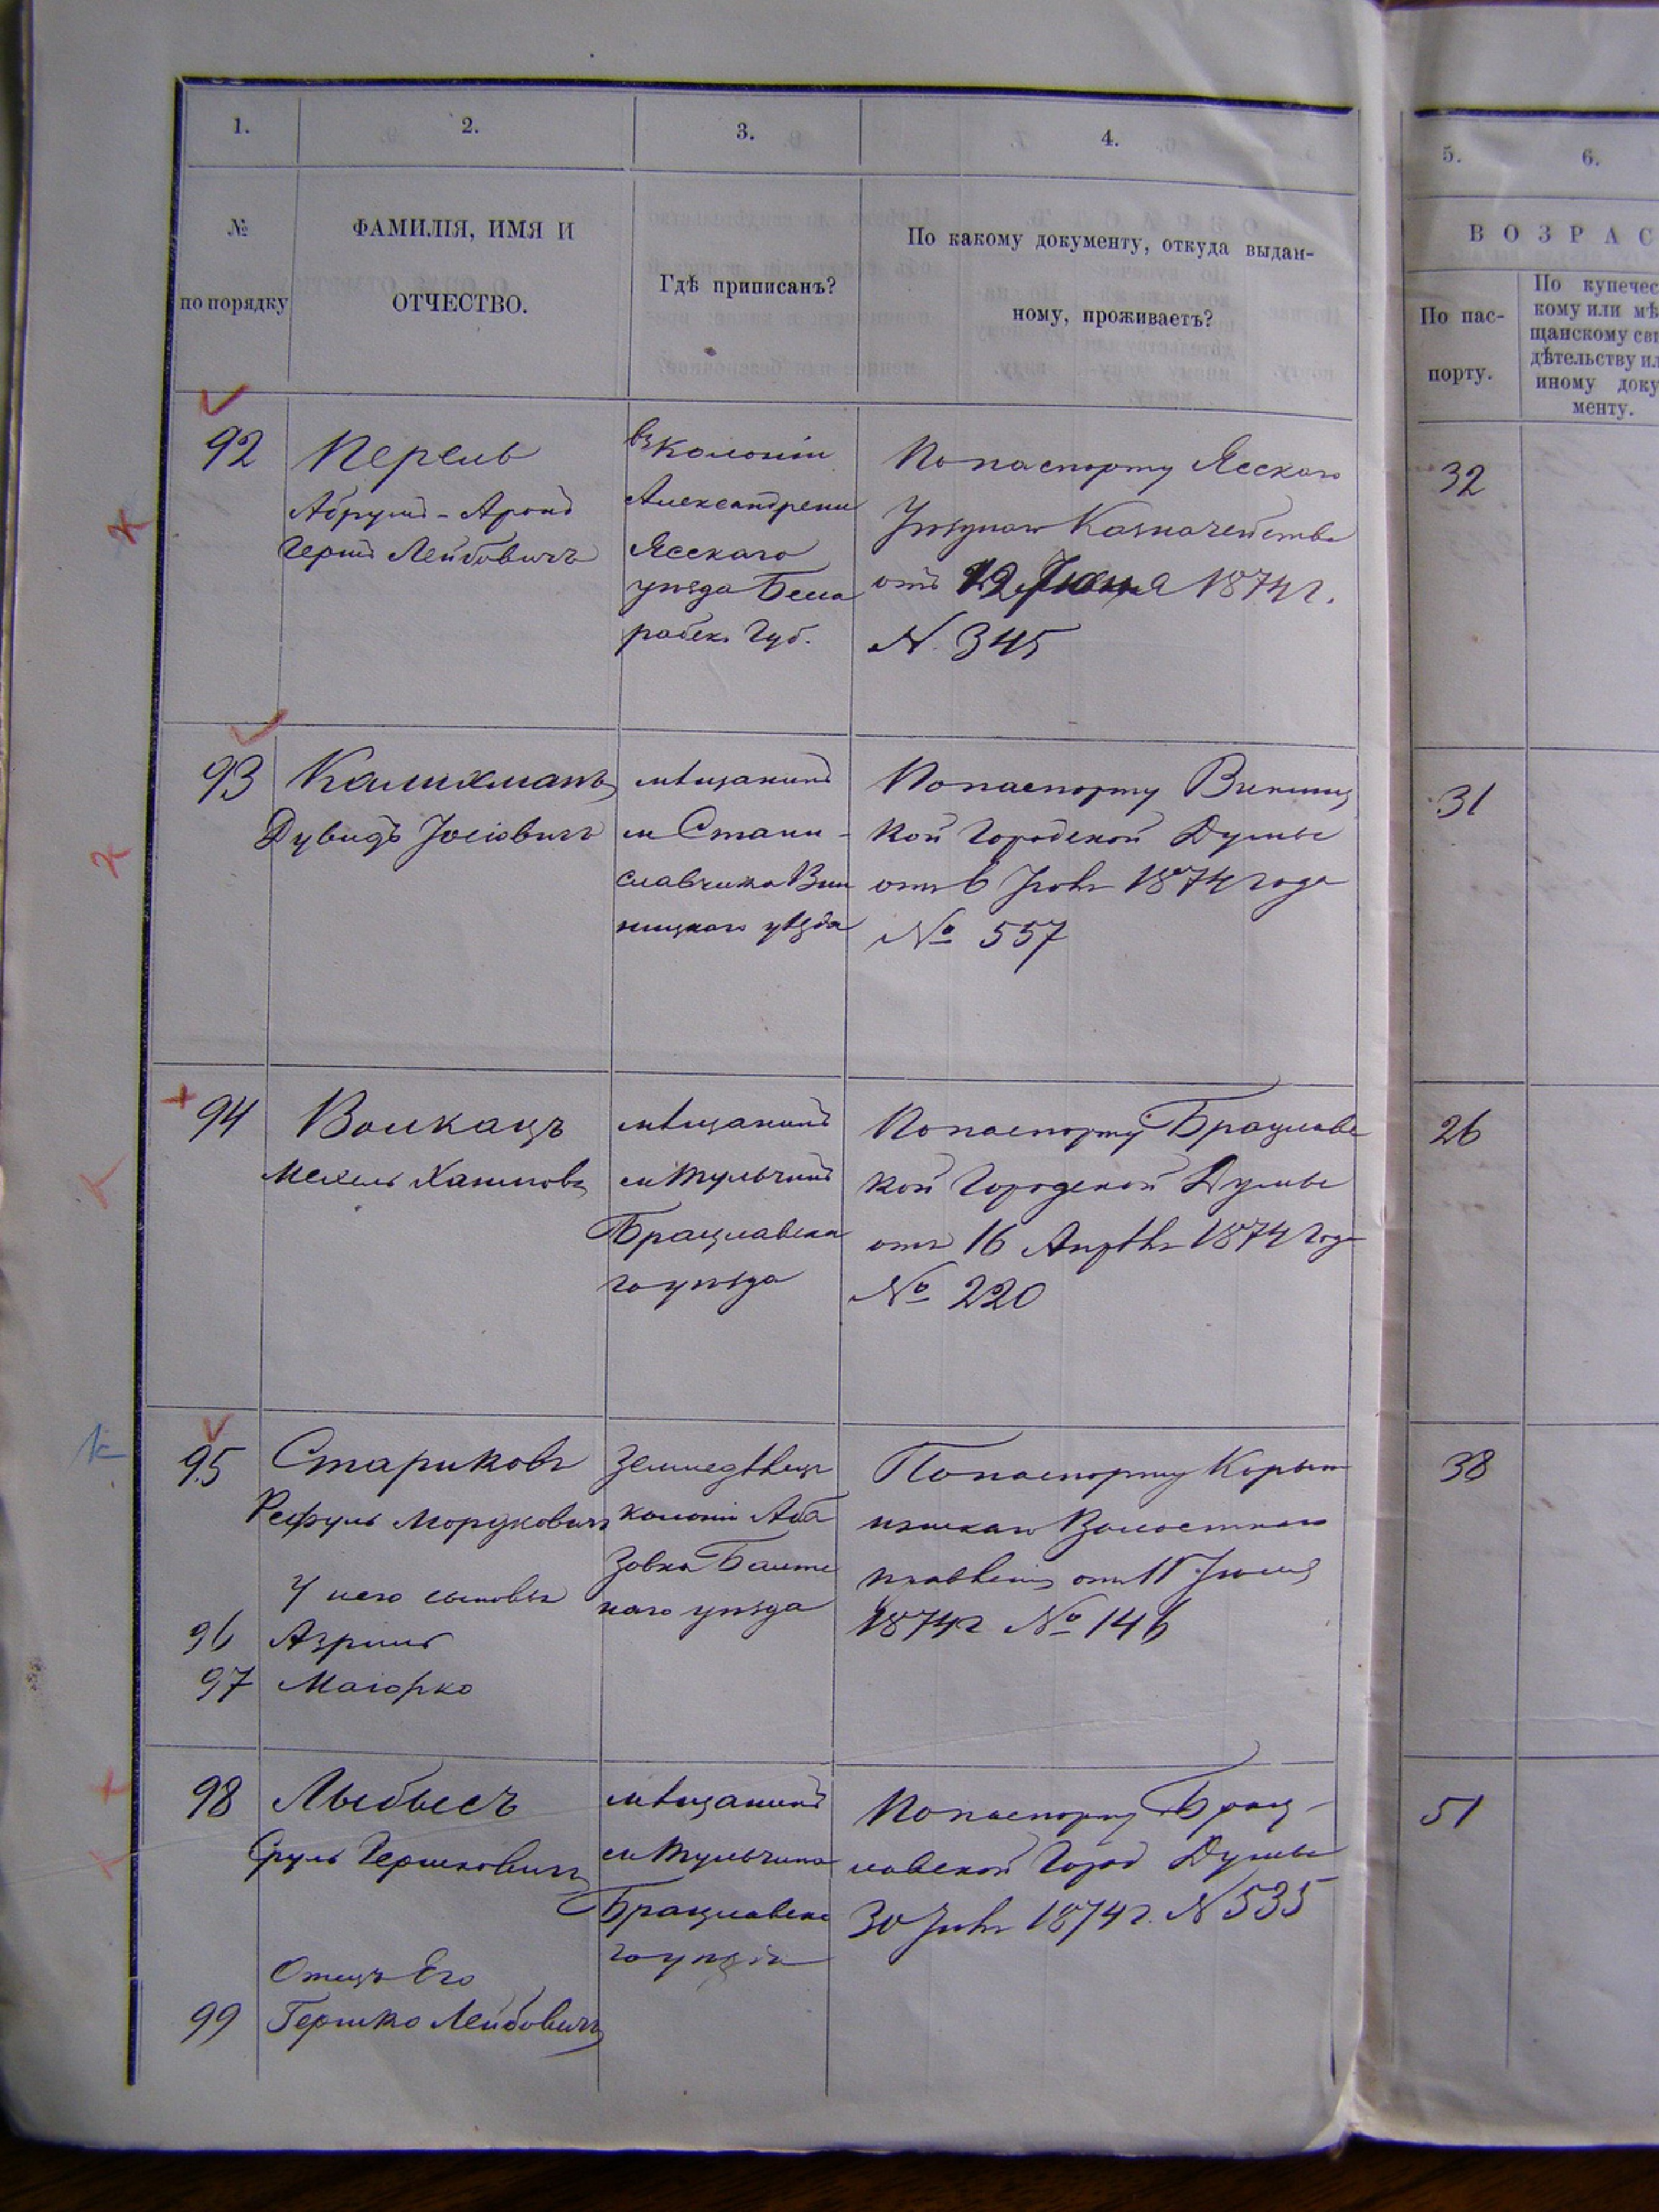 1. 2. 3. 4. 5. 6.
№
по порядку
ФАМИЛІЯ, ИМЯ И
ОТЧЕСТВО.
Гдѣ приписанъ?
По какому документу, откуда выдан-
ному, проживаетъ?
ВОЗРАС
По пас-
порту.
По купечес
кому или мѣ
щанскому сви
дѣтельству ил
иному доку
менту.
92
Перель
Абрумъ-Аронъ
Гершъ Лейбовичъ
въ Колоніи
Александрени
Ясскаго
уѣзда Бесса
рабск. Губ.
По паспорту Ясскаго
Уѣзднаго Казначейства
отъ 12 1874 г.
N. 345
32
93
Калихманъ
Дувидъ Јосіовичъ
мѣщанинъ
м Стани-
славчика Вин
ницкаго уѣзда
По паспорту Винниц
кой Городской Думы
отъ 6 1874 года
№ 557
31
94
Волкацъ
Мехель Хаимовъ
мѣщанинъ
м Тульчинъ
Брацлавска
го уѣзда
По паспорту Брацлавс
кой Городской Думы
отъ 16 Апрѣ 1874 года
№ 220
26
95
Стариковъ
Рефуль Мордковичъ
У него сыновья
96 Азриль
97 Маіорко
Земледѣлецъ
колоніи Аба
зовка Балтс
каго уѣзда
По паспорту
Волостнаго
правленія отъ 11
1874 г № 146
38
98
Лыбысъ
Сруль Гершковичъ
Отецъ Его
99 Гершко Лейбовичъ
мѣщанинъ
м Тульчина
Брацлавска
го уѣзда
По паспорту Брац-
лавской Город Думы
30 1874 г. N 535
51